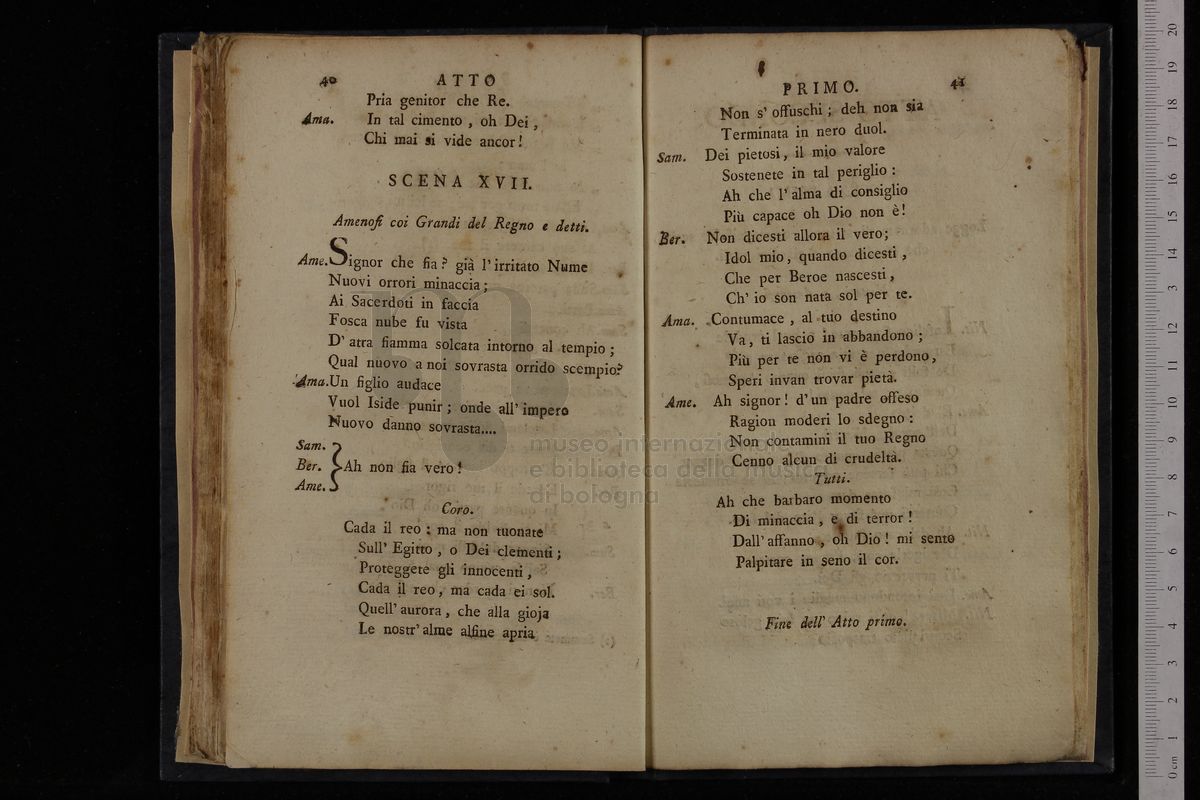 40 ATTO
Pria genitor che Re.
Ama. In tal cimento , oh Dei ,
Chi mai si vide ancor!
SCENA XVII.
Amenofi coi Grandi del Regno e detti.
Ame. Signor che fia? già l'irritato Nume
Nuovi orrori minaccia;
Ai Sacerdoti in faccia
Fosca nube fu vista
D' atra fiamma solcata intorno al tempio ;
Qual nuovo a noi sovrasta orrido scempio?
Ama. Un figlio audace
Vuol Iside punir ; onde all' impero
Nuovo danno sovrasta....
Sam.
Ber. } Ah non fia vero!
Ame.
Coro.
Cada il reo : ma non tuonate
Sull' Egitto , o Dei clementi ;
Proteggete gli innocenti ,
Cada il reo , ma cada ei sol.
Quell' aurora , che alla gioja
Le nostr' alme alfine apria
PRIMO. 41
Non s' offuschi ; deh non sia
Terminata in nero duol.
Sam. Dei pietosi , il mio valore
Sostenete in tal periglio :
Ah che l' alma di consiglio
Più capace oh Dio non è!
Ber. Non dicesti allora il vero;
Idol mio, quando dicesti ,
Che per Beroe nascesti ,
Ch' io son nata sol per te.
Ama. Contumace , al tuo destino
Va , ti lascio in abbandono ;
Più per te non vi è perdono,
Speri invan trovar pietà.
Ame. Ah signor! d' un padre offeso
Ragion moderi lo sdegno :
Non contamini il tuo Regno
Cenno alcun di crudeltà.
Tutti.
Ah che barbaro momento
Di minaccia , e di terror !
Dall' affanno , oh Dio ! mi sento
Palpitare in seno il cor.
Fine dell' Atto primo.
museo internazionale
e biblioteca della musica
di bologna
0 cm 1 2 3 4 5 6 7 8 9 10 11 12 13 14 15 16 17 18 19 20